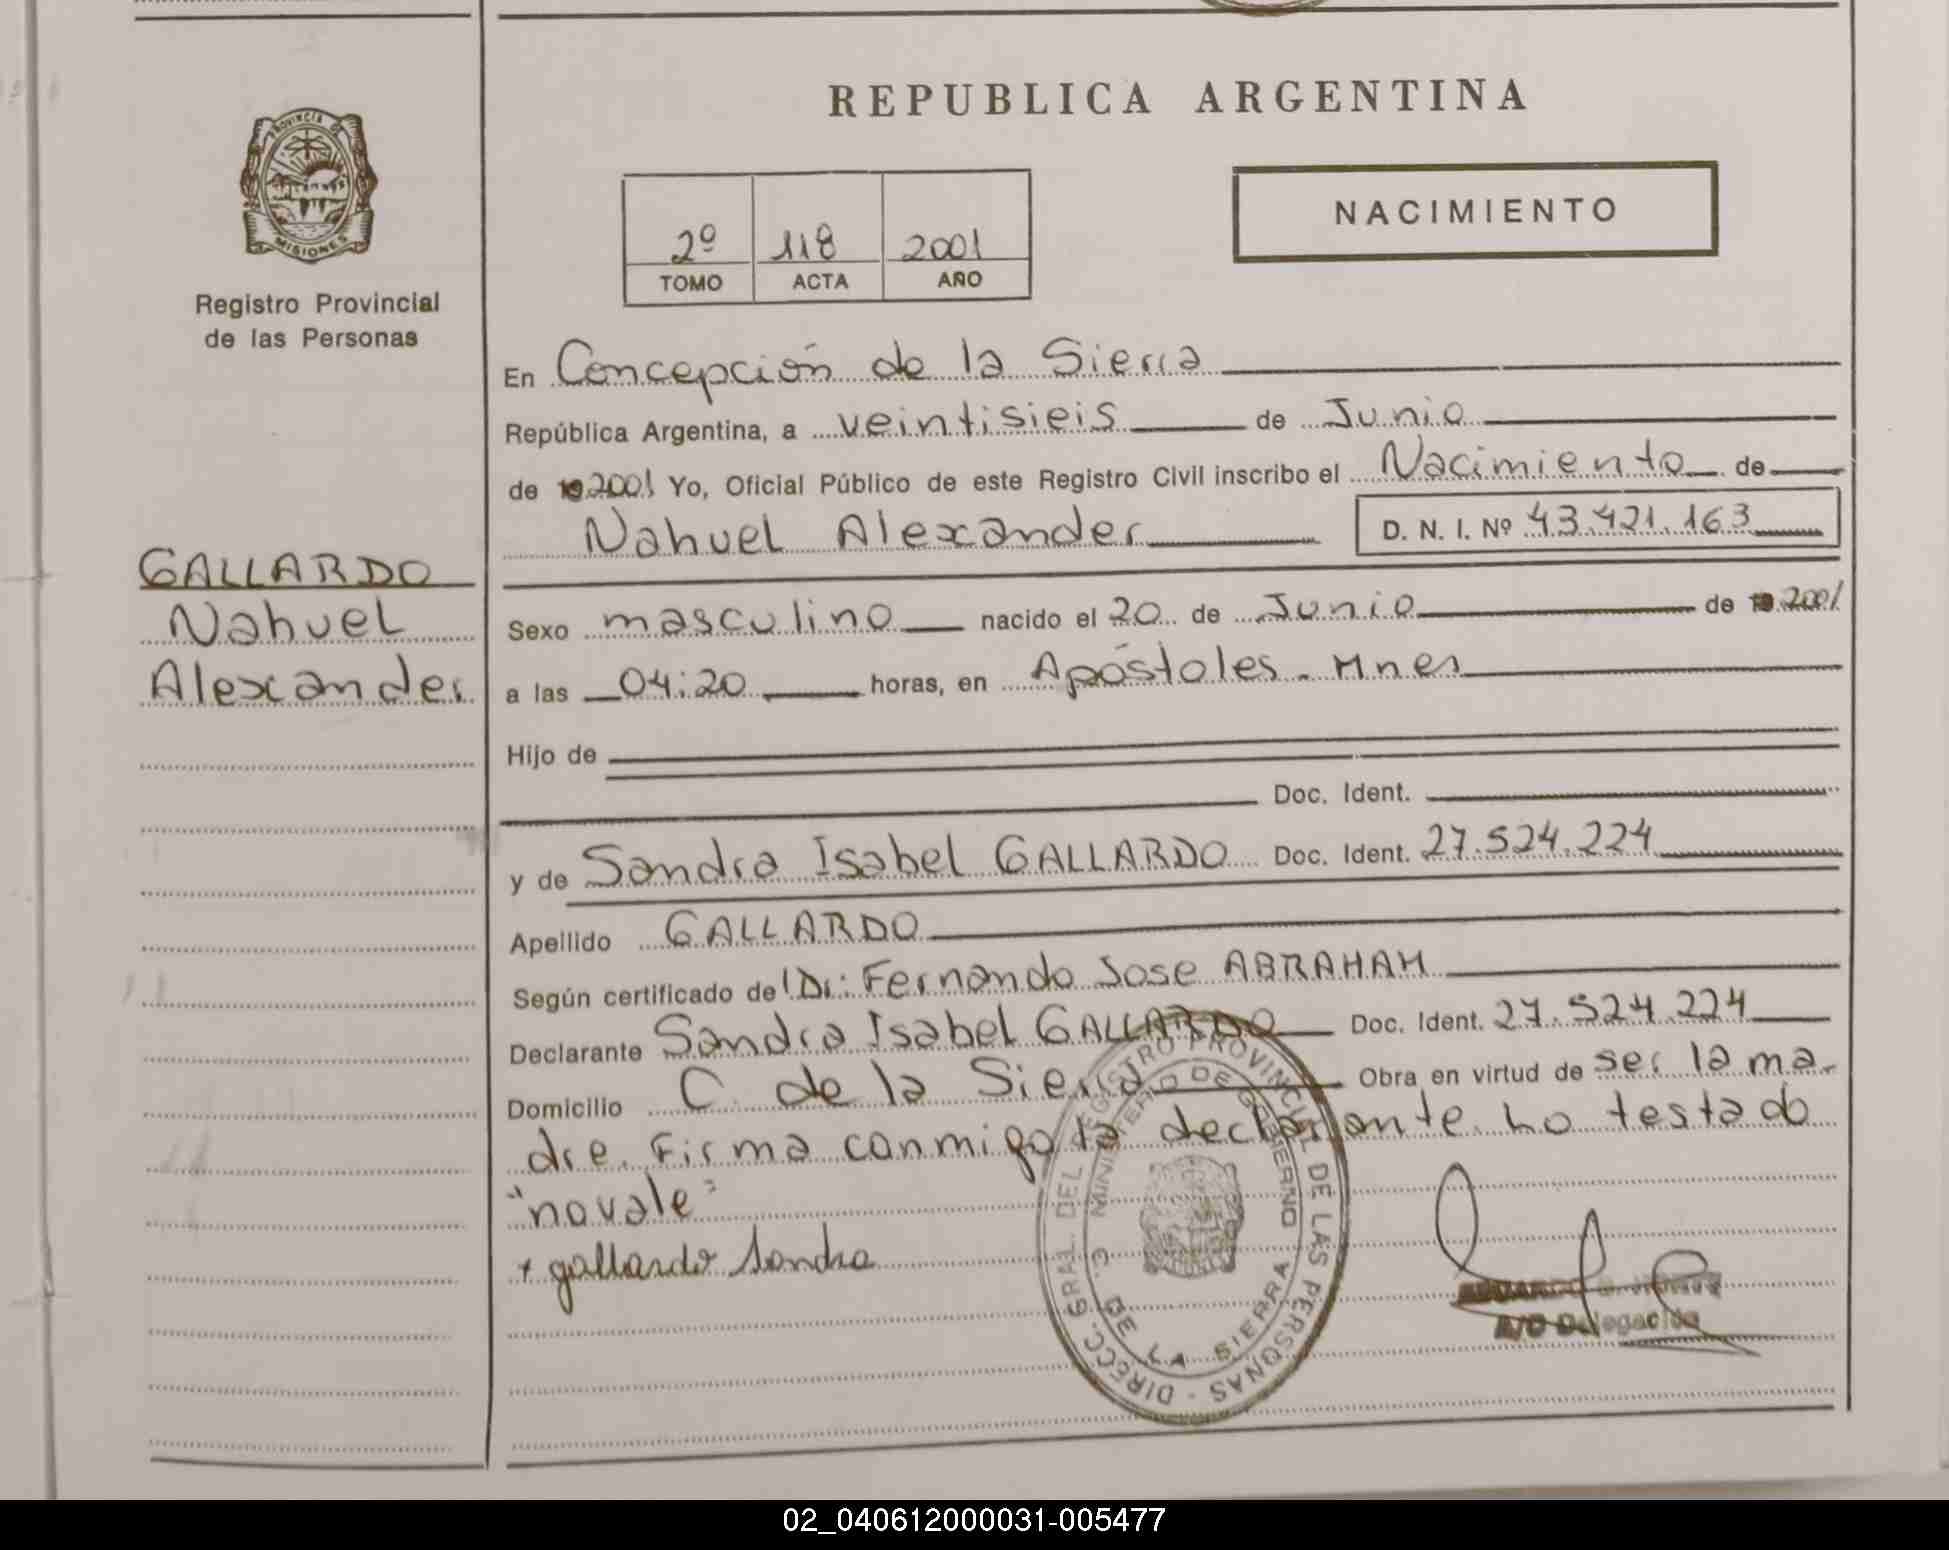 REPUBLICA ARGENTINA
PROVINCIA DE
MISIONES
Registro Provincial
de las Personas
2º 118 2001
TOMO ACTA AÑO
NACIMIENTO
En Concepción de la Sierra
República Argentina, a veintisieis de Junio
de 19 2001 Yo, Oficial Público de este Registro Civil inscribo el Nacimiento de
Nahuel Alexander D. N. I. Nº 43.421.163
GALLARDO
Nahuel
Alexander
Sexo masculino nacido el 20 de Junio de 19 2001
a las 04:20 horas, en Apóstoles. Mnes
Hijo de
Doc. Ident.
y de Sandra Isabel GALLARDO Doc. Ident. 27.524.224
Apellido GALLARDO
Según certificado de Dr: Fernando Jose ABRAHAM
Declarante Sandra Isabel GALLARDO Doc. Ident. 27.524.224
Domicilio C. de la Sierra Obra en virtud de ser la ma-
dre. Firma conmigo la declarante. Lo testado
"no vale"
+ gallardo Sandra
DIRECC. GRAL. DEL REGISTRO PROVINCIAL DE LAS PERSONAS -
MINISTERIO DE GOBIERNO
C. DE LA SIERRA
A/C Delegación
02_040612000031-005477